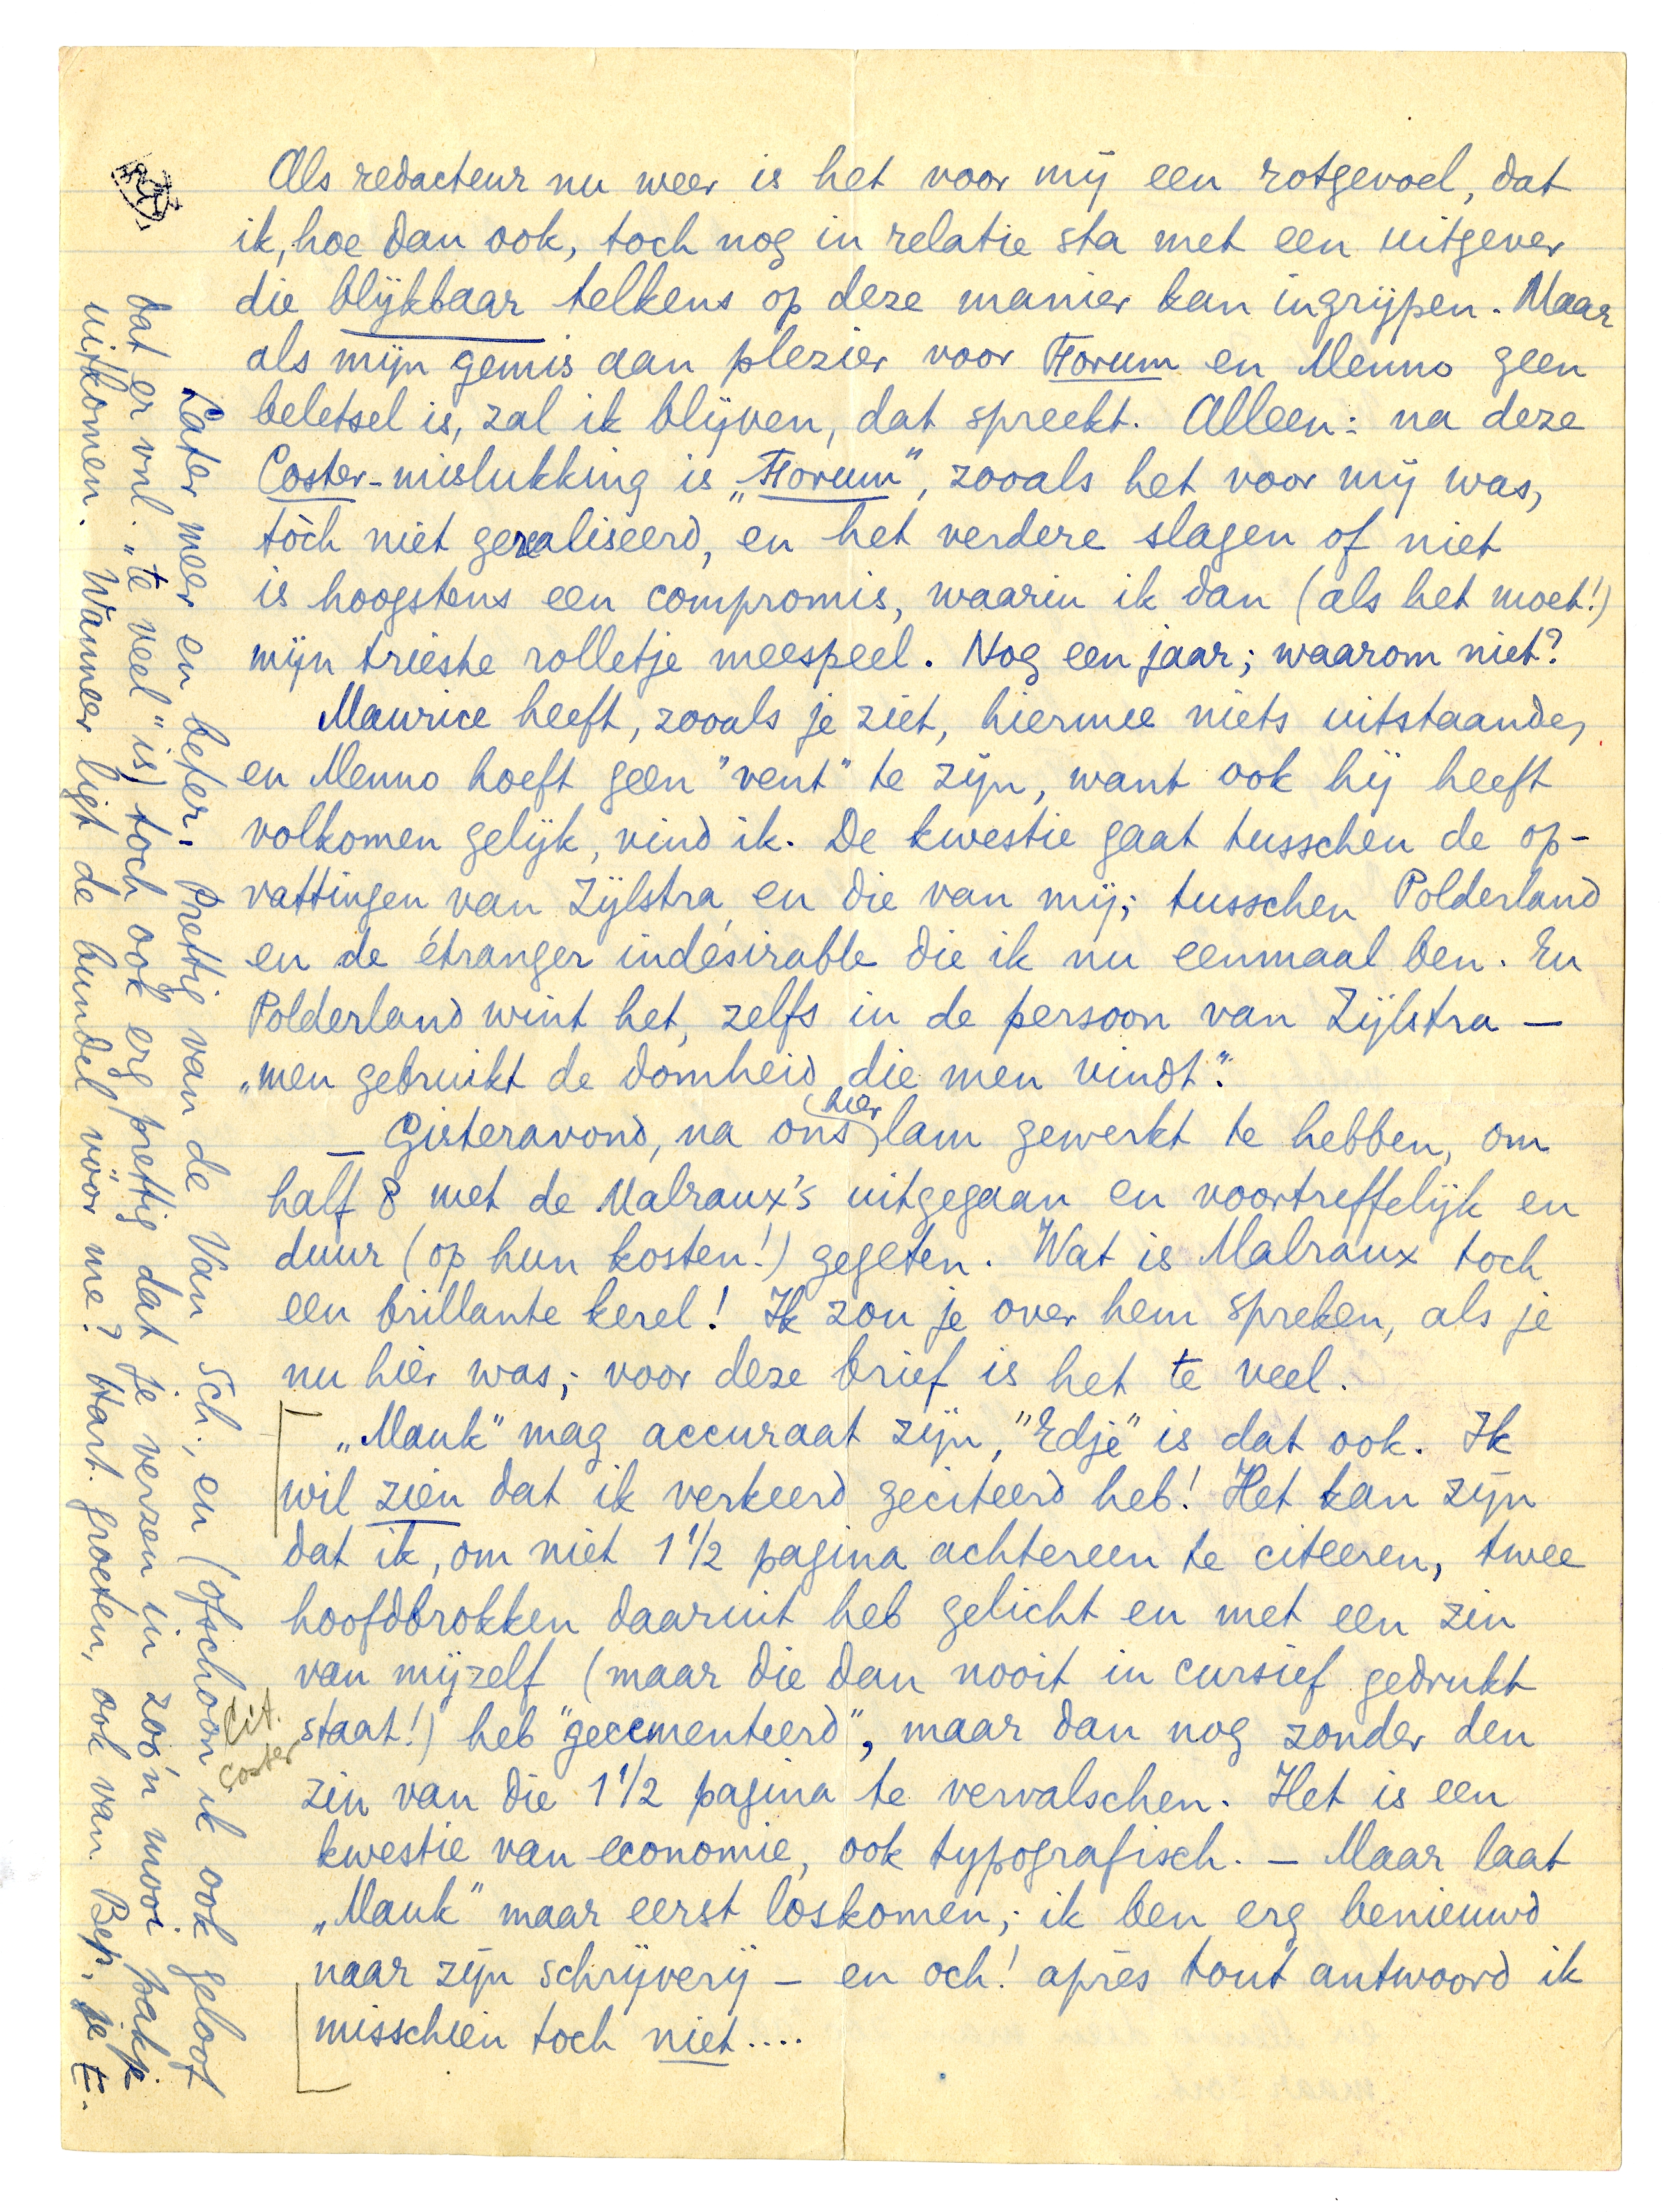 Als redacteur nu weer is het voor mij een rotgevoel, dat
ik, hoe dan ook, toch nog in relatie sta met een uitgever
die blijkbaar telkens op deze manier kan ingrijpen. Maar
als mijn gemis aan plezier voor Forum en Menno geen
beletsel is, zal ik blijven, dat spreekt. Alleen: na deze
Coster-mislukking is „Forum", zooals het voor mij was,
tòch niet gerealiseerd, en het verdere slagen of niet
is hoogstens een compromis, waarin ik dan (als het moet!)
mijn trieste rolletje meespeel. Nog een jaar; waarom niet?
Maurice heeft, zooals je ziet, hiermee niets uitstaande,
en Menno hoeft geen "vent" te zijn, want ook hij heeft
volkomen gelijk, vind ik. De kwestie gaat tusschen de op-
vattingen van Zijlstra en die van mij; tusschen Polderland
en de étranger indésirable die ik nu eenmaal ben. En
Polderland wint het, zelfs in de persoon van Zijlstra —
„men gebruikt de domheid die men vindt".
— Gisteravond, na ons hier lam gewerkt te hebben, om
half 8 met de Malraux's uitgegaan en voortreffelijk en
duur (op hun kosten!) gegeten. Wat is Malraux toch
een brillante kerel! Ik zou je over hem spreken, als je
nu hier was; voor deze brief is het te veel.
„Mauk" mag accuraat zijn, "Edje" is dat ook. Ik
wil zien dat ik verkeerd geciteerd heb! Het kan zijn
dat ik, om niet 1 1/2 pagina achtereen te citeeren, twee
hoofdbrokken daaruit heb gelicht en met een zin
van mijzelf (maar die dan nooit in cursief gedrukt
staat!) heb "gecementeerd", maar dan nog zonder den
zin van die 1 1/2 pagina te vervalschen. Het is een
kwestie van economie, ook typografisch. — Maar laat
„Mauk" maar eerst loskomen; ik ben erg benieuwd
naar zijn schrijverij — en och! après tout antwoord ik
misschien toch niet....
cit.
Coster
Later meer en beter. Prettig van de Van Sch., en (ofschoon ik ook geloof
dat er vnl. „te veel" is) toch ook erg prettig dat je verzen in zoo'n mooi pakje
uitkomen. Wanneer ligt de bundel vóór me? Hart. groeten, ook van Bep, je E.